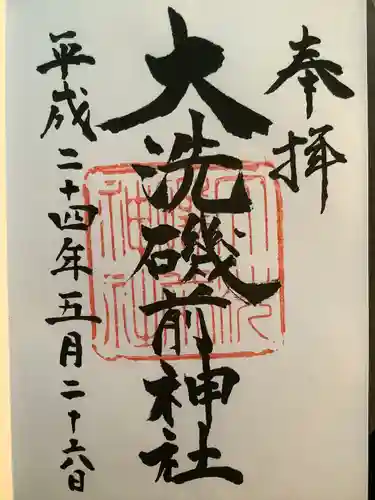 奉拝
大洗磯前神社
平成二十四年五月二十六日